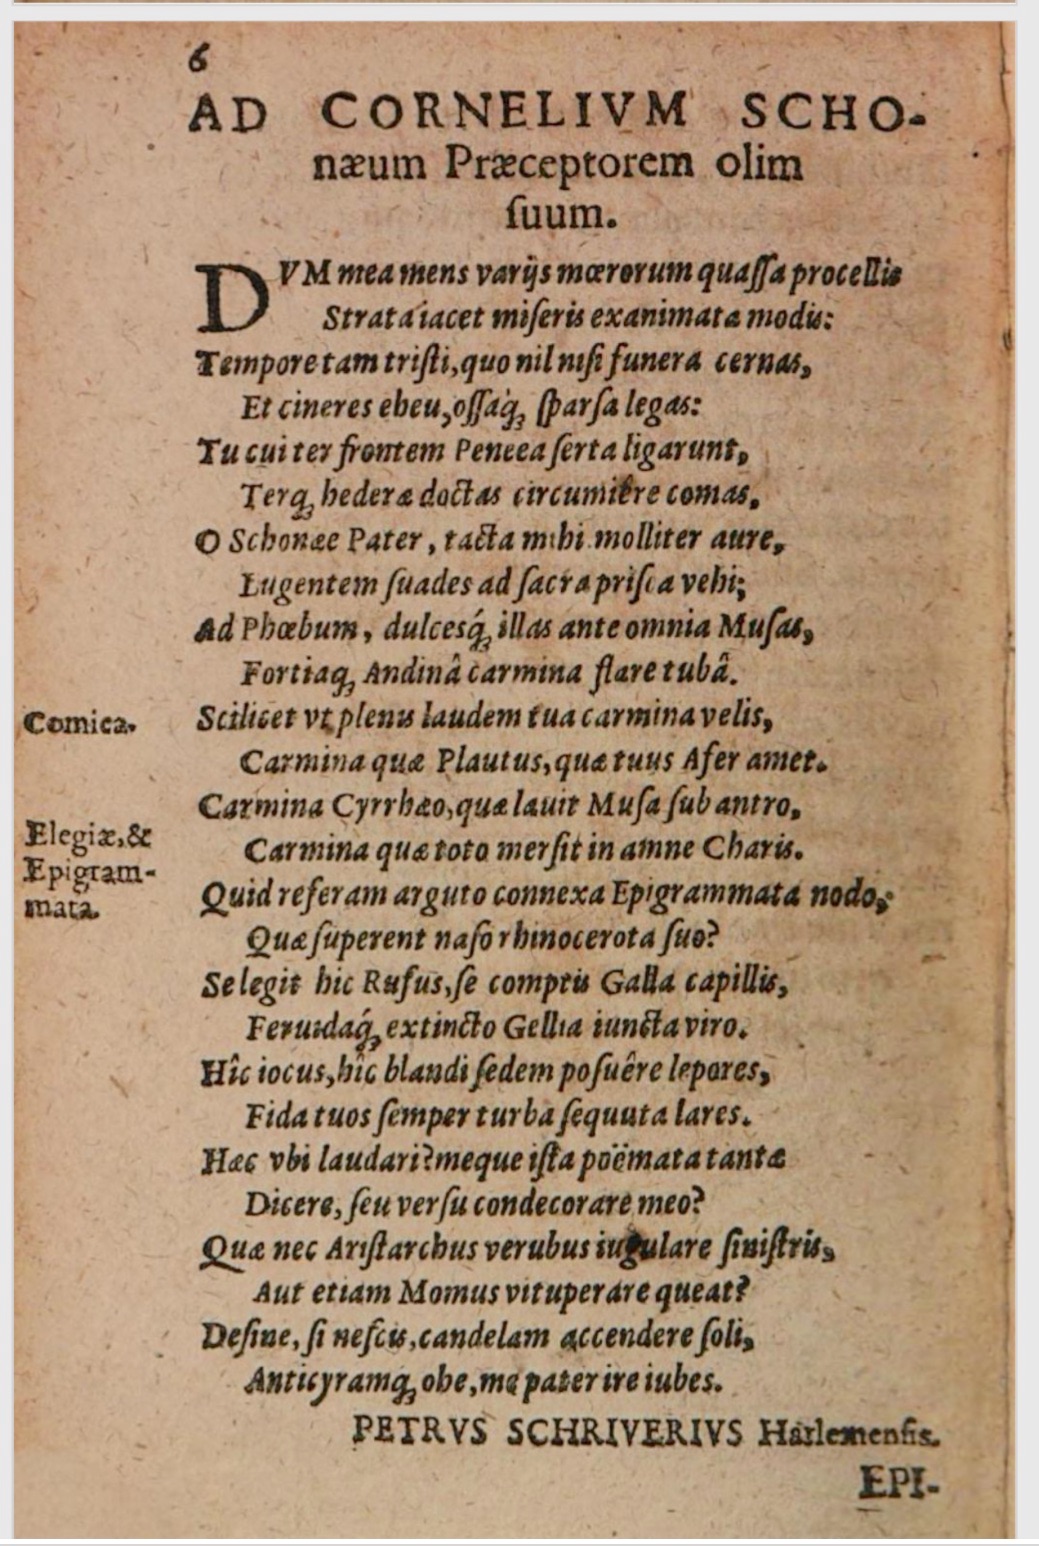 6
AD CORNELIVM SCHO-
næum Præceptorem olim
ſuum.
DVM mea mens varijs mœrorum quaſſa procellis
Strata iacet miſeris exanimata modis:
Tempore tam triſti, quo nil niſi funera cernas,
Et cineres eheu, oſſaq́; ſparſa legas:
Tu cui ter frontem Peneea ſerta ligarunt,
Terq; hederæ doctas circumiêre comas,
O Schonæe Pater, tacta mihi molliter aure,
Lugentem ſuades ad ſacra priſca vehi;
Ad Phœbum, dulcesq́; illas ante omnia Muſas,
Fortiaq; Andinâ carmina flare tubâ.
Comica.
Scilicet vt plenis laudem tua carmina velis,
Carmina quæ Plautus, quæ tuus Afer amet.
Carmina Cyrrhæo, quæ lauit Muſa ſub antro,
Elegiæ, &
Epigram-
mata.
Carmina quæ toto merſit in amne Charis.
Quid referam arguto connexa Epigrammata nodo,
Quæ ſuperent naſo rhinocerota ſuo?
Se legit hic Rufus, ſe comptis Galla capillis,
Feruidaq́; extincto Gellia iuncta viro.
Hîc iocus, hîc blandi ſedem poſuêre lepores,
Fida tuos ſemper turba ſequuta lares.
Hæc vbi laudari? meque iſta poëmata tantæ
Dicere, ſeu verſu condecorare meo?
Quæ nec Ariſtarchus verubus iugulare ſiniſtris,
Aut etiam Momus vituperare queat?
Deſine, ſi neſcis, candelam accendere ſoli,
Anticyramq; ohe, me pater ire iubes.
PETRVS SCHRIVERIVS Harlemenſis.
EPI-